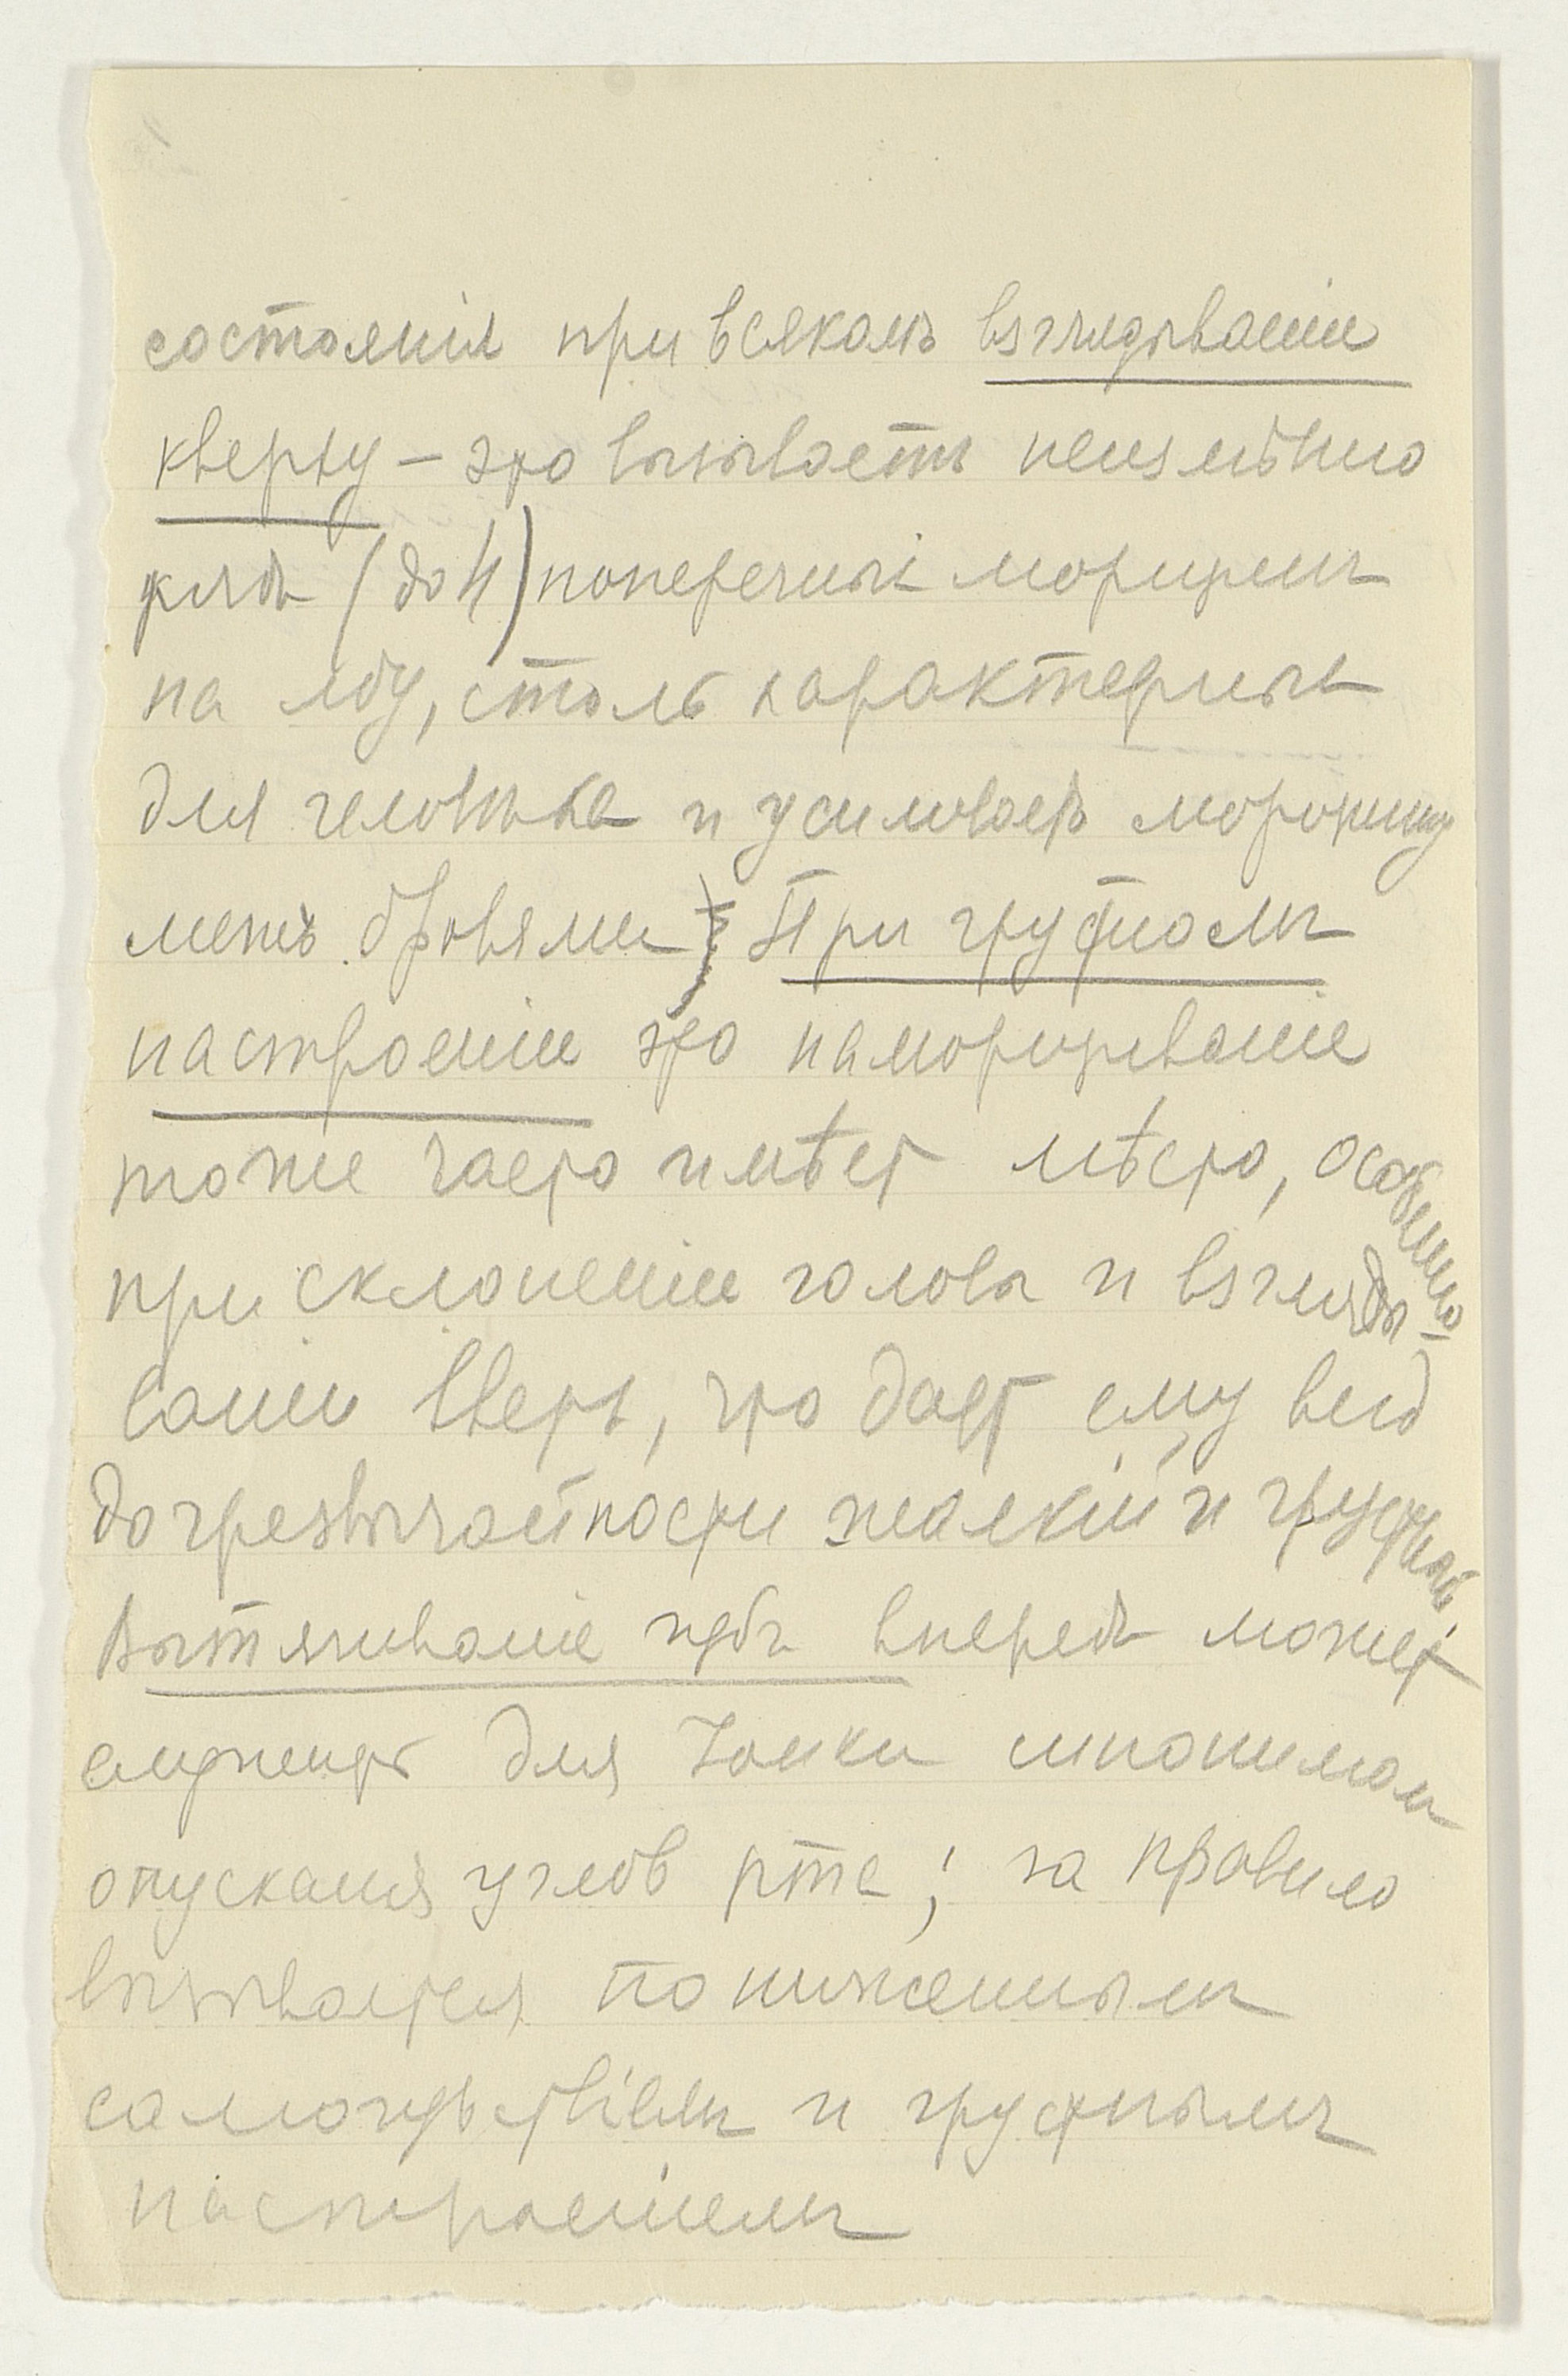 состоянія при всякомъ взглядываніи
кверху – это вызываетъ неизмѣнно
рядъ (до 4) поперечныхъ морщинъ
на лбу, столь характерных
для человѣка и усиливаетъ морщину
межъ бровями При грустномъ
настроеніи это наморщиваніе
тоже часто имѣет мѣсто, особенно
при склоненіи головы и взгляды-
ваніи вверхъ, что даетъ ему вид
до чрезвычайности жалкій и грустный.
Вытягиваніе губъ впередъ можетъ
служить для Иони синонимом
опусканія углов рта; за правило
вызывается пониженнымъ
самочувствіемъ и грустнымъ
настроеніемъ